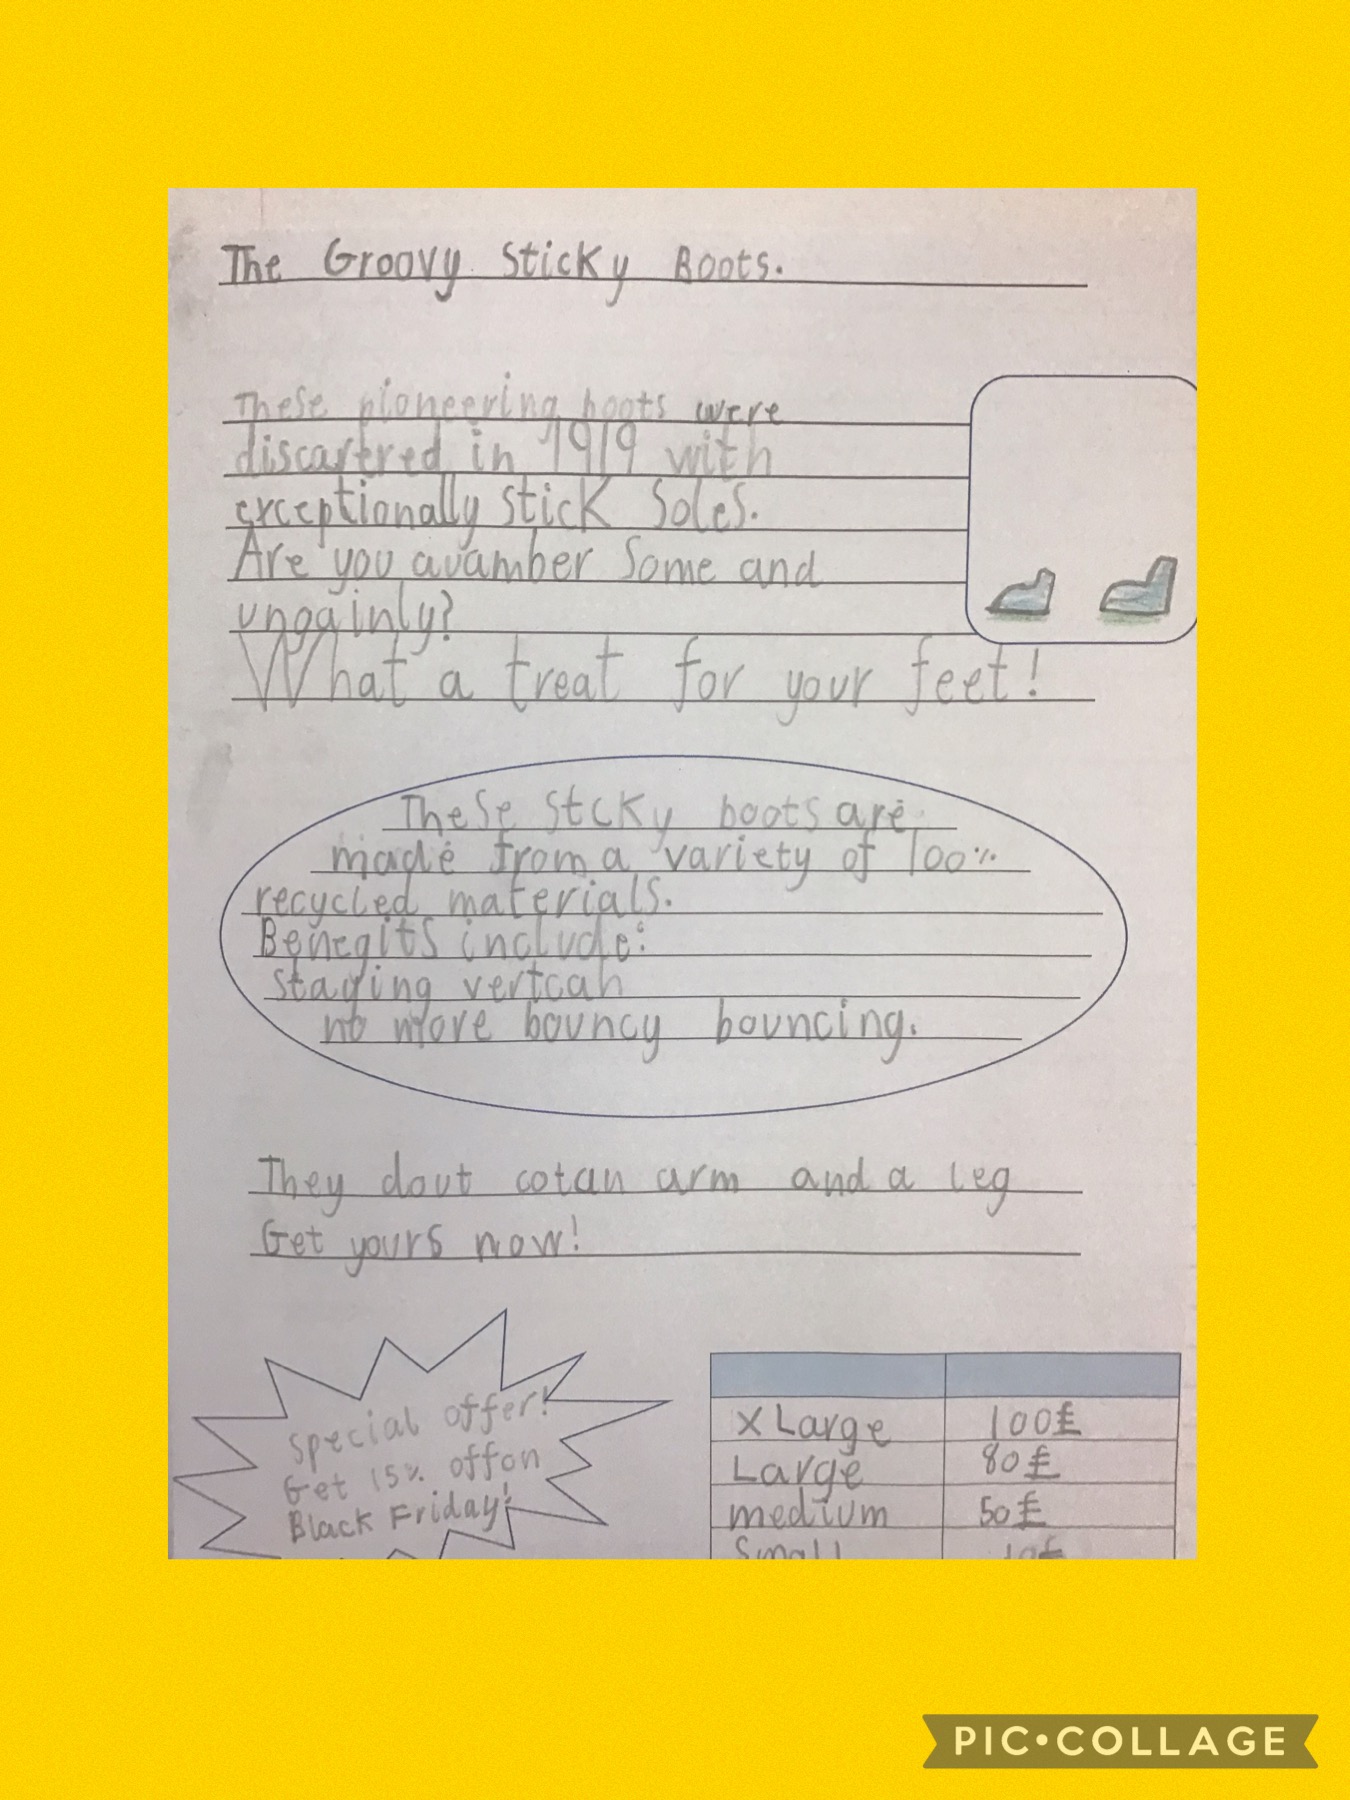 The Groovy Sticky Boots.
These pioneering boots were
discartred in 1919 with
exceptionally stick Soles.
Are you avamber Some and
ungainly?
What a treat for your feet!
These stcky boots are
made from a variety of 100%
recycled materials.
Benegits include:
staying vertcah
no more bouncy bouncing.
They dout cotan arm and a leg
Get yours now!
Special offer!
Get 15% off on
Black Friday!
X Large 100£
Large 80£
medium 50£
Small
PIC•COLLAGE